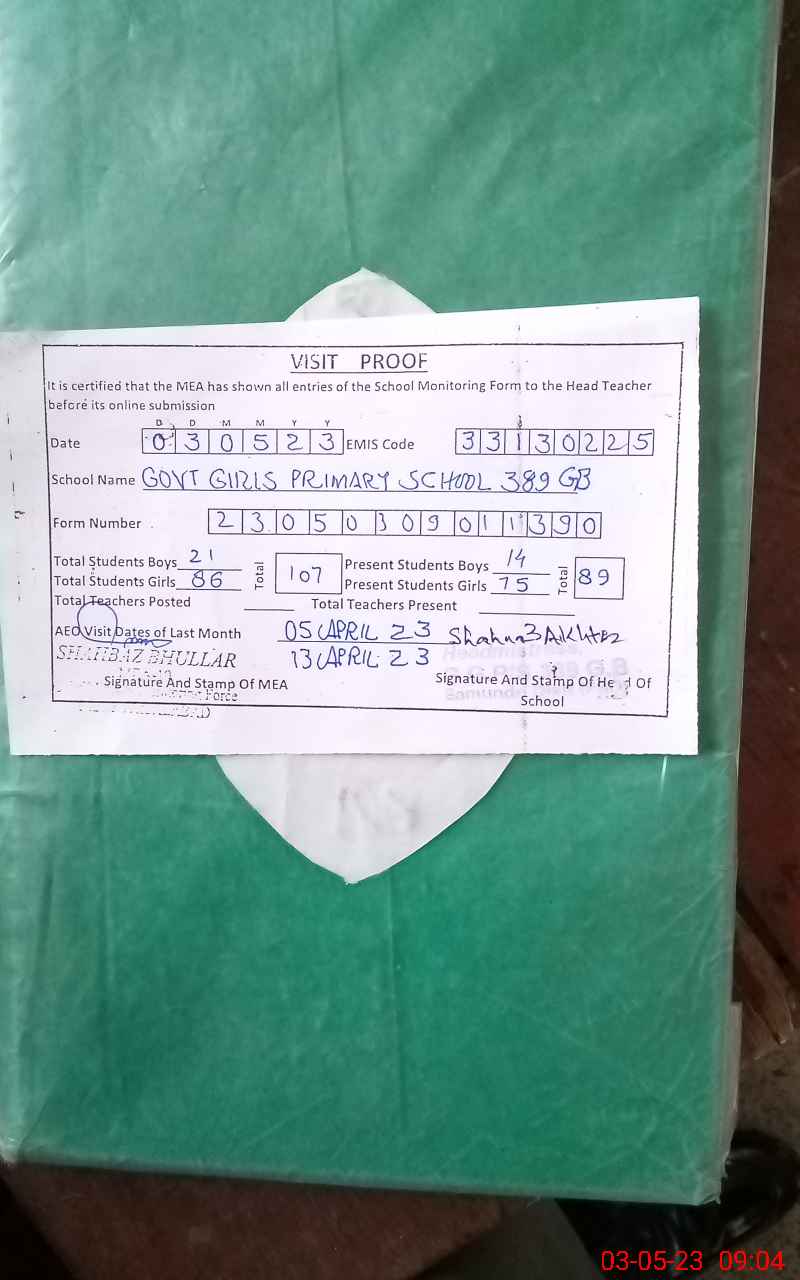 VISIT PROOF
It is certified that the MEA has shown all entries of the School Monitoring Form to the Head Teacher
before its online submission
D D M M Y Y
Date 0 3 0 5 2 3 EMIS Code 3 3 1 3 0 2 2 5
School Name GOVT GIRLS PRIMARY SCHOOL 389 GB
Form Number 2 3 0 5 0 3 0 9 0 1 1 3 9 0
Total Students Boys 21 Total 107 Present Students Boys 14 Total 89
Total Students Girls 86 Present Students Girls 75
Total Teachers Posted Total Teachers Present
AEO Visit Dates of Last Month 05 APRIL 23 Shahnaz AKhtar
SHAHBAZ BHULLAR 13 APRIL 23 Headmistress,
389 G.B
Signature And Stamp Of MEA Signature And Stamp Of Head Of
Force School
03-05-23 09:04